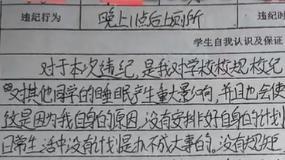 违纪行为 晚上11点后上厕所 违纪时
学生自我认识及保证
对于本次违纪，是我对学校校规校纪
又对其他同学的睡眠产生重大影响，并且也会使
这是因为我自身的原因，没有安排好自身的计划
日常生活中没有计划是办不成大事的。没有规矩